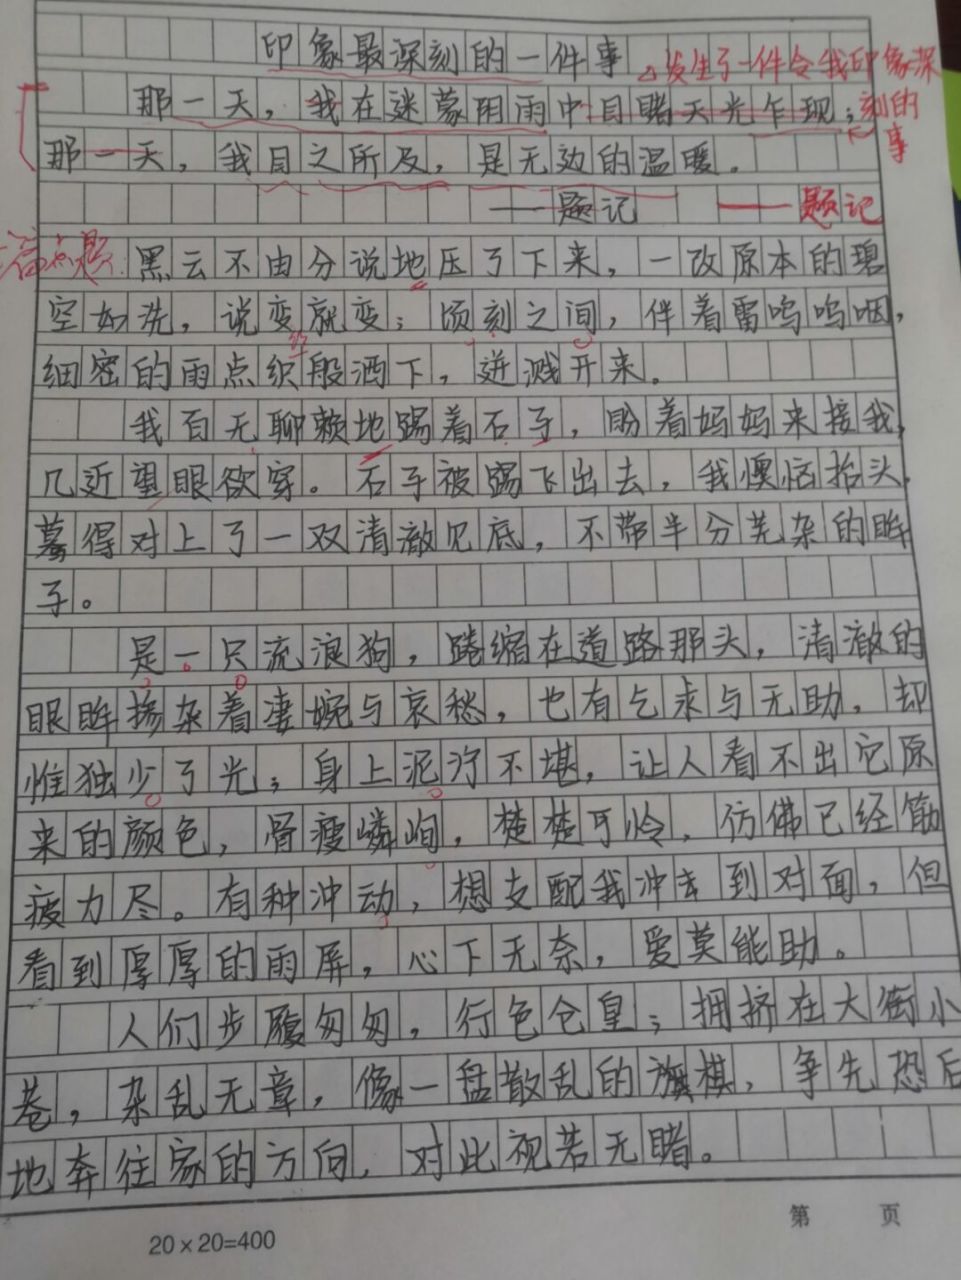 印象最深刻的一件事
发生了一件令我印象深
那一天，我在迷蒙阴雨中目睹天光乍现；
刻的
事
那一天，我目之所及，是无边的温暖。
——题记
——题记
点题
黑云不由分说地压了下来，一改原本的碧
空如洗，说变就变；顷刻之间，伴着雷鸣呜咽，
细密的雨点织般洒下，迸溅开来。
我百无聊赖地踢着石子，盼着妈妈来接我，
几近望眼欲穿。石子被踢飞出去，我懊恼抬头，
蓦得对上了一双清澈见底，不带半分芜杂的眸
子。
是一只流浪狗，蜷缩在道路那头，清澈的
眼眸掺杂着凄婉与哀愁，也有乞求与无助，却
惟独少了光；身上泥泞不堪，让人看不出它原
来的颜色，骨瘦嶙峋，楚楚可怜，仿佛已经筋
疲力尽。有种冲动，想支配我冲去到对面，但
看到厚厚的雨屏，心下无奈，爱莫能助。
人们步履匆匆，行色仓皇；拥挤在大街小
巷，杂乱无章，像一盘散乱的旗棋，争先恐后
地奔往家的方向，对此视若无睹。
第 页
20×20=400